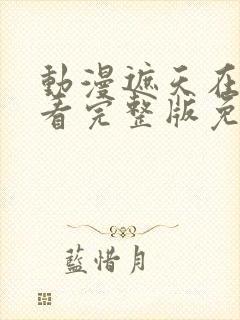 動漫遮天在
看完整版免
藍惜月